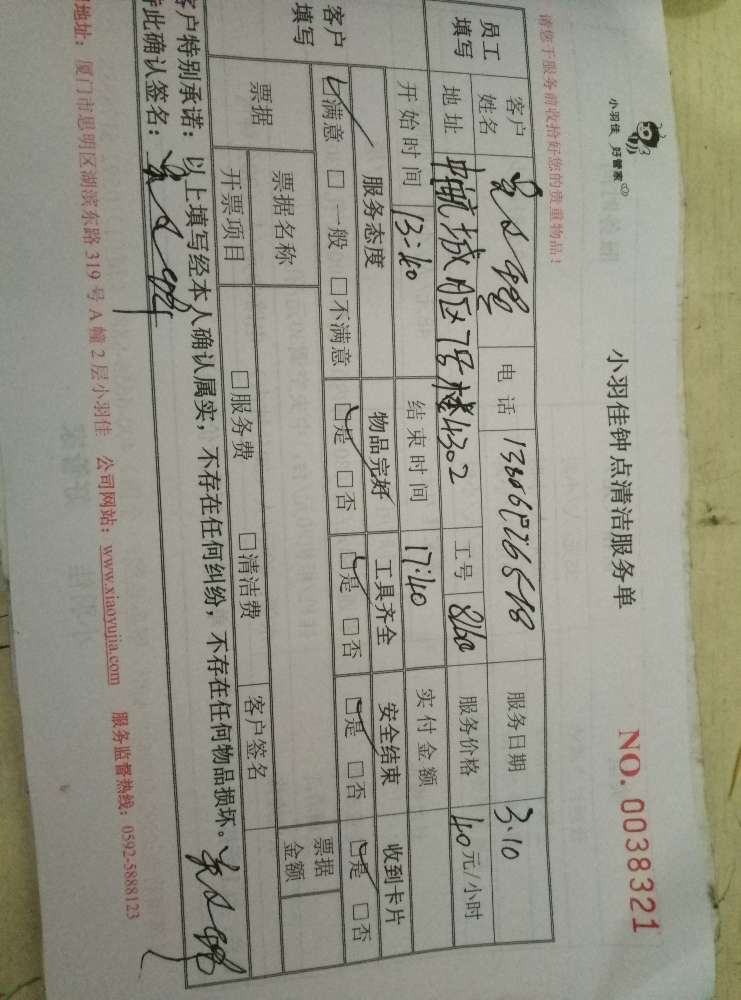 小羽佳 好管家
小羽佳钟点清洁服务单
NO. 0038321
请您于服务前收拾好您的贵重物品!
员工填写 客户姓名 电话 服务日期 3.10
地址 中航城A区7号楼4302 工号 服务价格 40元/小时
客户填写 开始时间 13:40 结束时间 17:40 实付金额
服务态度 物品完好 工具齐全 安全结束 收到卡片
☑满意 □一般 □不满意 ☑是 □否 ☑是 □否 ☑是 □否 ☑是 □否
票据 票据名称 票据金额
开票项目 □服务费 □清洁费 客户签名
客户特别承诺:以上填写经本人确认属实,不存在任何纠纷,不存在任何物品损坏。
此确认签名:
地址:厦门市思明区湖滨东路319号A幢2层小羽佳 公司网站:www.xiaoyujia.com 服务监督热线:0592-5888123